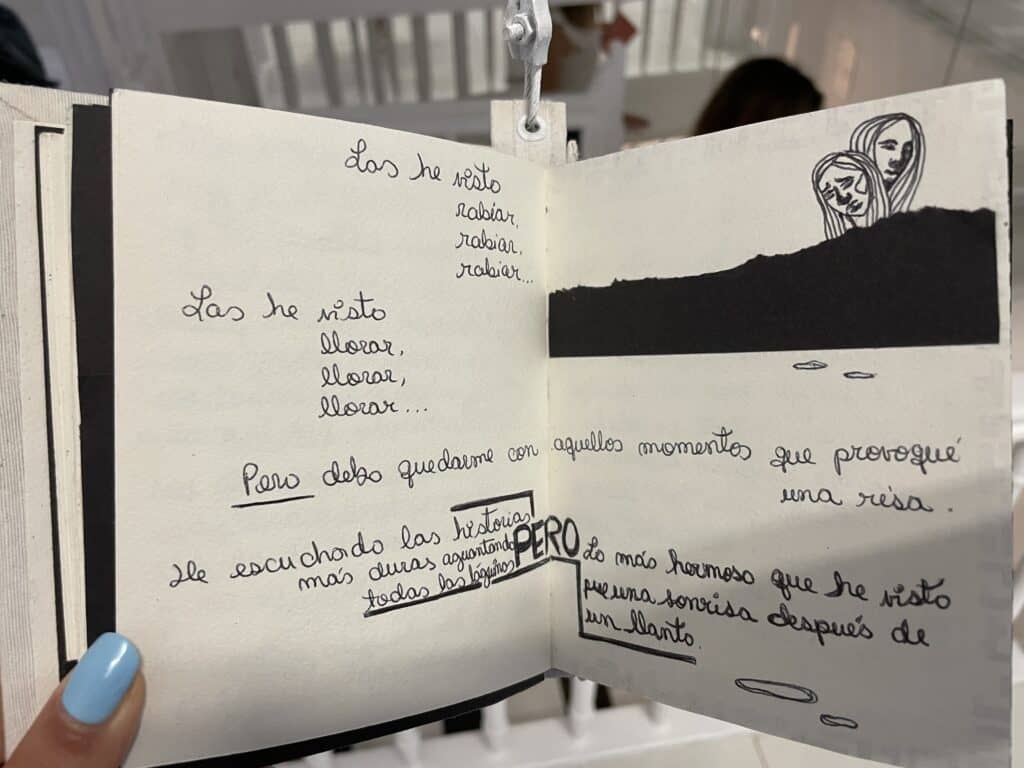 Las he visto
rabiar,
rabiar,
rabiar...
Las he visto
llorar,
llorar,
llorar...
Pero debo quedarme con aquellos momentos que provoqué
una risa.
He escuchado las historias
más duras aguantando
todas las lágrimas
PERO
Lo más hermoso que he visto
fue una sonrisa después de
un llanto.